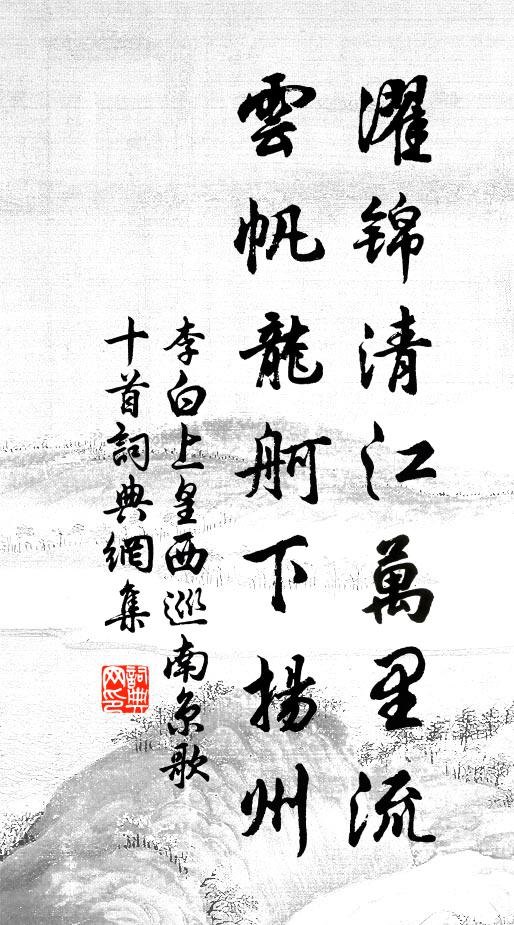 濯锦清江萬里流
雲帆龍舸下揚州
李白上皇西巡南京歌
十首詞典網集
詞典
网印